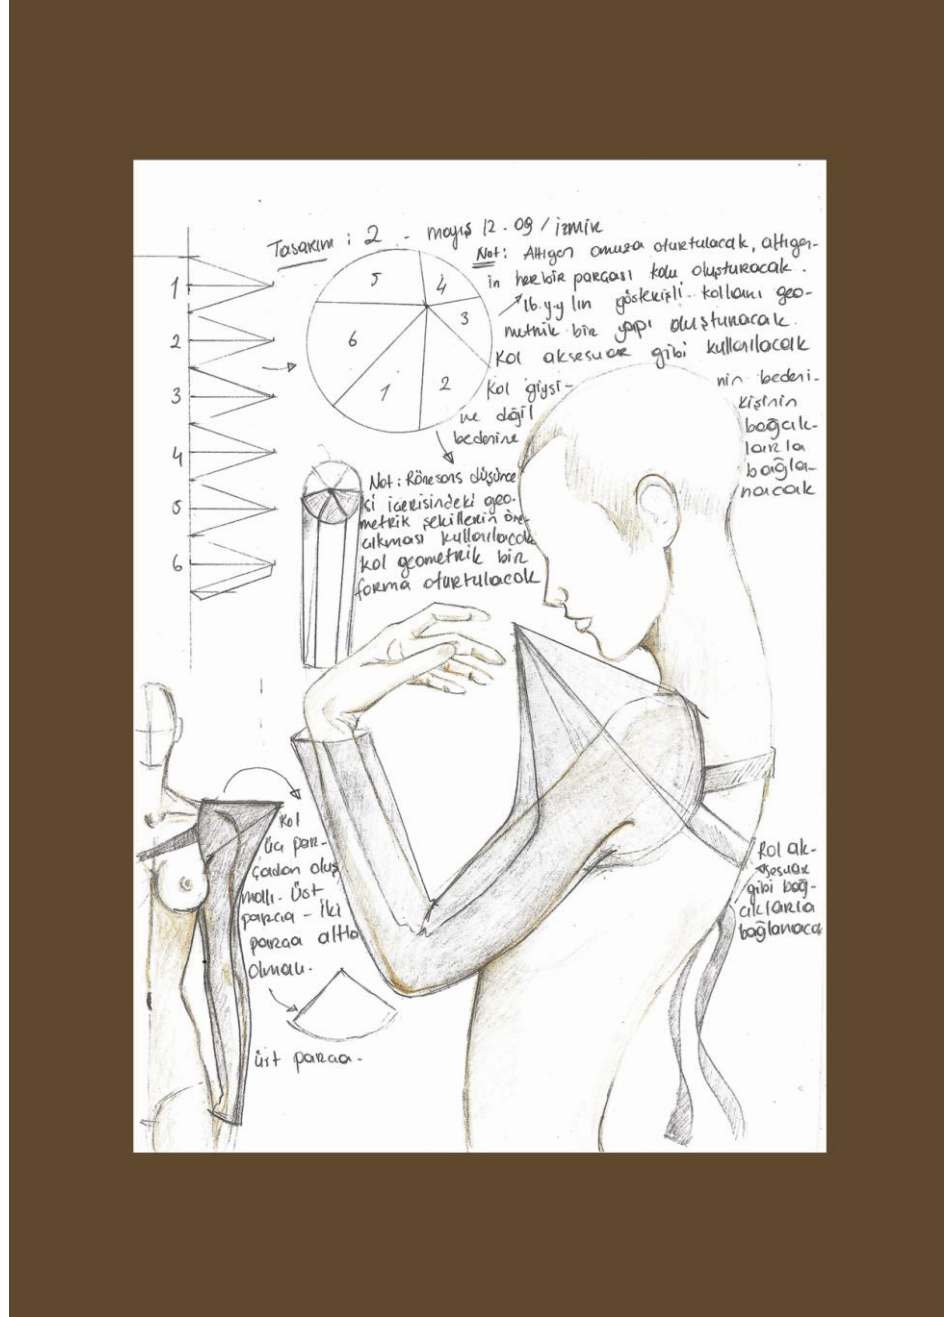 Tasarım : 2 - mayıs 12. 09 / izmir
Not: Altıgen omuza oturtulacak, altıgen-
in herbir parçası kolu oluşturacak.
16.y.y lın gösterişli kolları geo-
metrik bir yapı oluşturacak.
kol aksesuar gibi kullanılacak
kol giysi-
ne değil
bedenine
nin bedeni-
kişinin
bağcık-
larla
bağla-
nacak
1
2
3
4
5
6
5
4
3
6
1
2
Not: Rönesans düşünce
si içerisindeki geo-
metrik şekillerin öne
çıkması kullanılacak
kol geometrik bir
forma oturtulacak
kol
üç par-
çadan oluş
malı. üst
parça - iki
parça altta
olmalı.
üst parça.
kol ak-
sesuar
gibi bağ-
cıklarla
bağlanaca